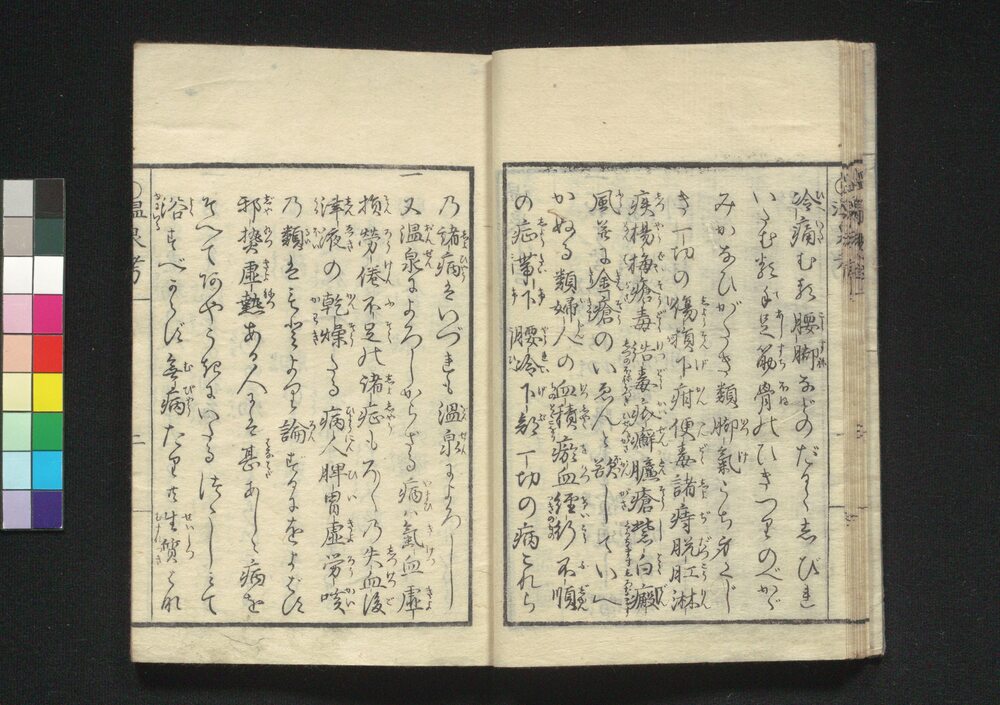 冷痛む類腰脚などのだるくしびれ
いたむ類手足筋骨のひきつりのべかゞ
みかなひがたき類脚氣うち身くじ
き一切の傷損下疳便毒諸痔脱肛淋
疾楊梅瘡毒結毒疥癬臁瘡紫白癜
風并に金瘡のいゑんと欲していへ
かぬる類婦人の血積瘀血經行不順
の症帯下腰冷下部一切の病これら
乃諸病はいづれも温泉によろし
一又温泉によろしからざる病ハ氣血虚
損労倦不足の諸症もろ〱乃失血後
津液の乾燥たる病人脾胃虚労咳
乃類は 論ずるにをよばす
邪 虚熱ある人にハ甚あしし病を
そへてあやうきにいたる つゝしみて
浴すべからず無病たり共生質
温泉考